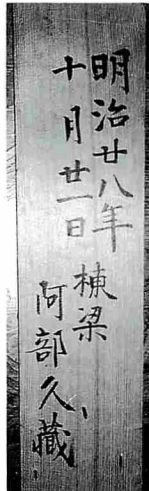 明治廿八年
十月廿一日
棟梁
阿部久藏